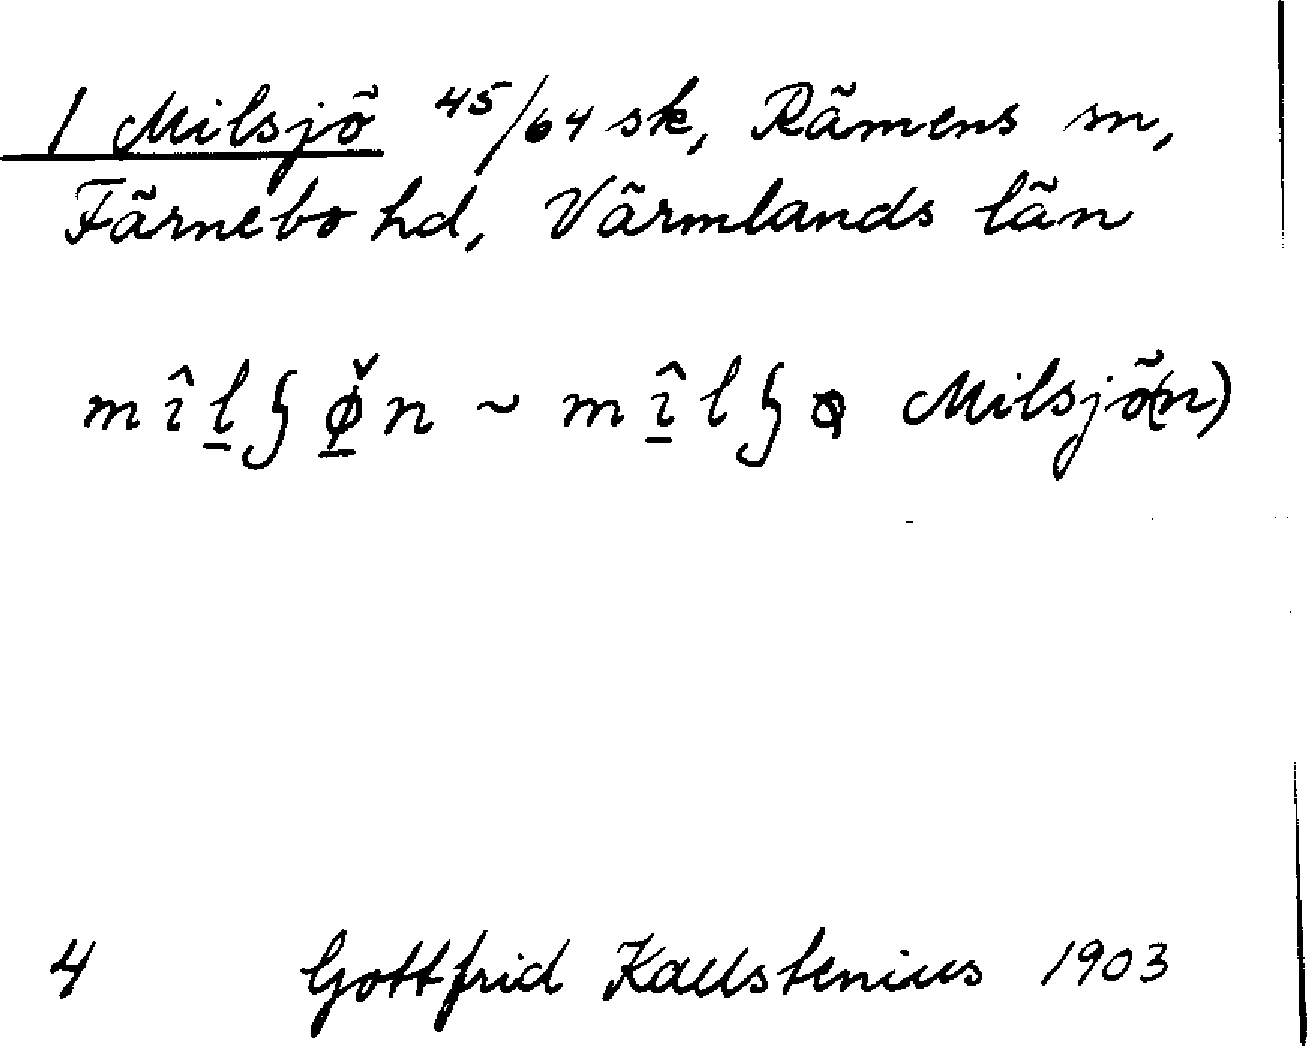 1 Milsjö 45/64 sk, Rämens sn,
Färnebo hd, Värmlands län
Milsjö(n)
4 Gottfrid Kallstenius 1903